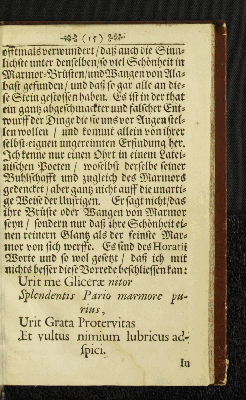 (15)
offtmals verwundert / daß auch die Sinn-
lichste unter denselben / so viel Schönheit in
Marmor-Brüsten / und Wangen von Ala-
bast gefunden / und daß so gar alle an die-
se Stein gestossen haben. Es ist in der that
ein gantz abgeschmackter und falscher Ent-
wurff der Dinge die sie uns vor Augen stel-
len wollen / und kommt allein von ihrer
selbst-eignen ungereimten Erfindung her.
Ich kenne nur einen Ohrt in einem Latei-
nischen Poeten / woselbst derselbe seiner
Buhlschafft und zugleich des Marmors
gedencket / aber gantz nicht auff die unarti-
ge Weise der Unsrigen. Er sagt nicht / das
ihre Brüste oder Wangen von Marmor
seyn / sondern nur daß ihre Schönheit ei-
nen reinern Glantz als der feinste Mar-
mor von sich werffe. Es sind des Horatii
Worte und so wol gesetzt / daß ich mit
nichts besser diese Vorrede beschliessen kan:
Urit me Gliceræ nitor
Splendentis Pario marmore pu-
rius,
Urit Grata Protervitas
Et vultus nimium lubricus ad-
spici.
In